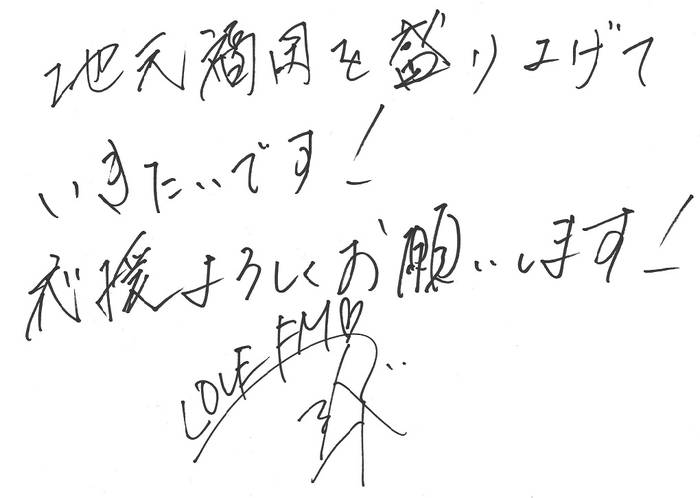 地元福岡を盛り上げて
いきたいです!
応援よろしくお願いします!
LOVE FM♡